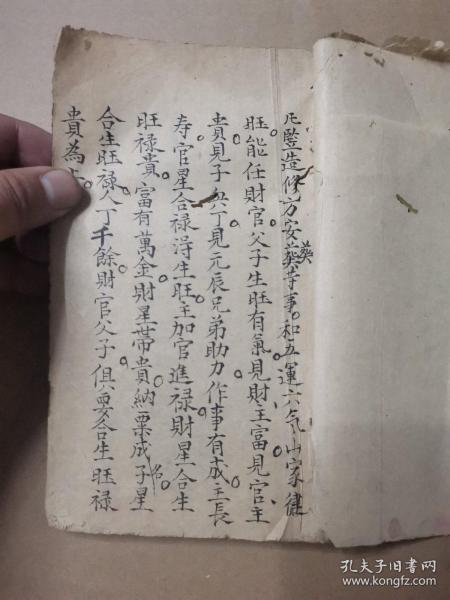 凡豎造修方安葬等事。和五運六气山家健
葬
旺能任財官父子生旺有氣見財主富見官主
貴見子與丁見元辰兄弟助力作事有成主長
寿官星合禄淂生旺主加官進禄財星合生
旺禄貴富有萬金財星帶貴納粟成名子星
合生旺禄人丁千餘財官父子俱要合生旺禄
貴為
孔夫子旧书网
www.kongfz.com